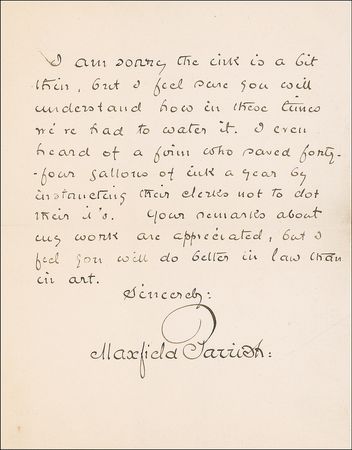 I am sorry the ink is a bit
thin, but I feel sure you will
understand how in these times
we're had to water it. I even
heard of a firm who saved forty-
-four gallons of ink a year by
instructing their clerks not to dot
their i's. Your remarks about
my work are appreciated, but I
feel you will do better in law than
in art.
Sincerely:
Maxfield Parrish: